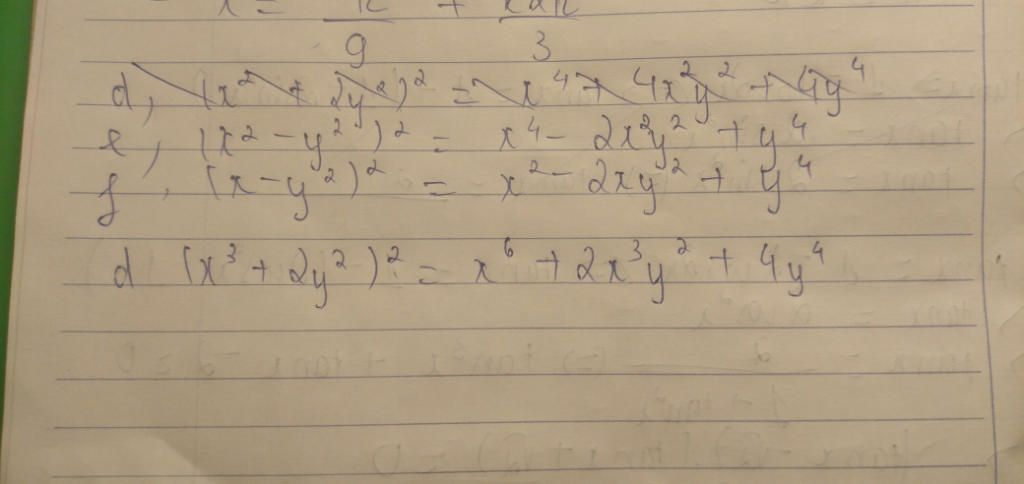 x = π/9 + k2π/3
d, (x² + 2y²)² = x⁴ + 4x²y² + 4y⁴
e, (x² - y²)² = x⁴ - 2x²y² + y⁴
f, (x - y²)² = x² - 2xy² + y⁴
d (x³ + 2y²)² = x⁶ + 2x³y² + 4y⁴